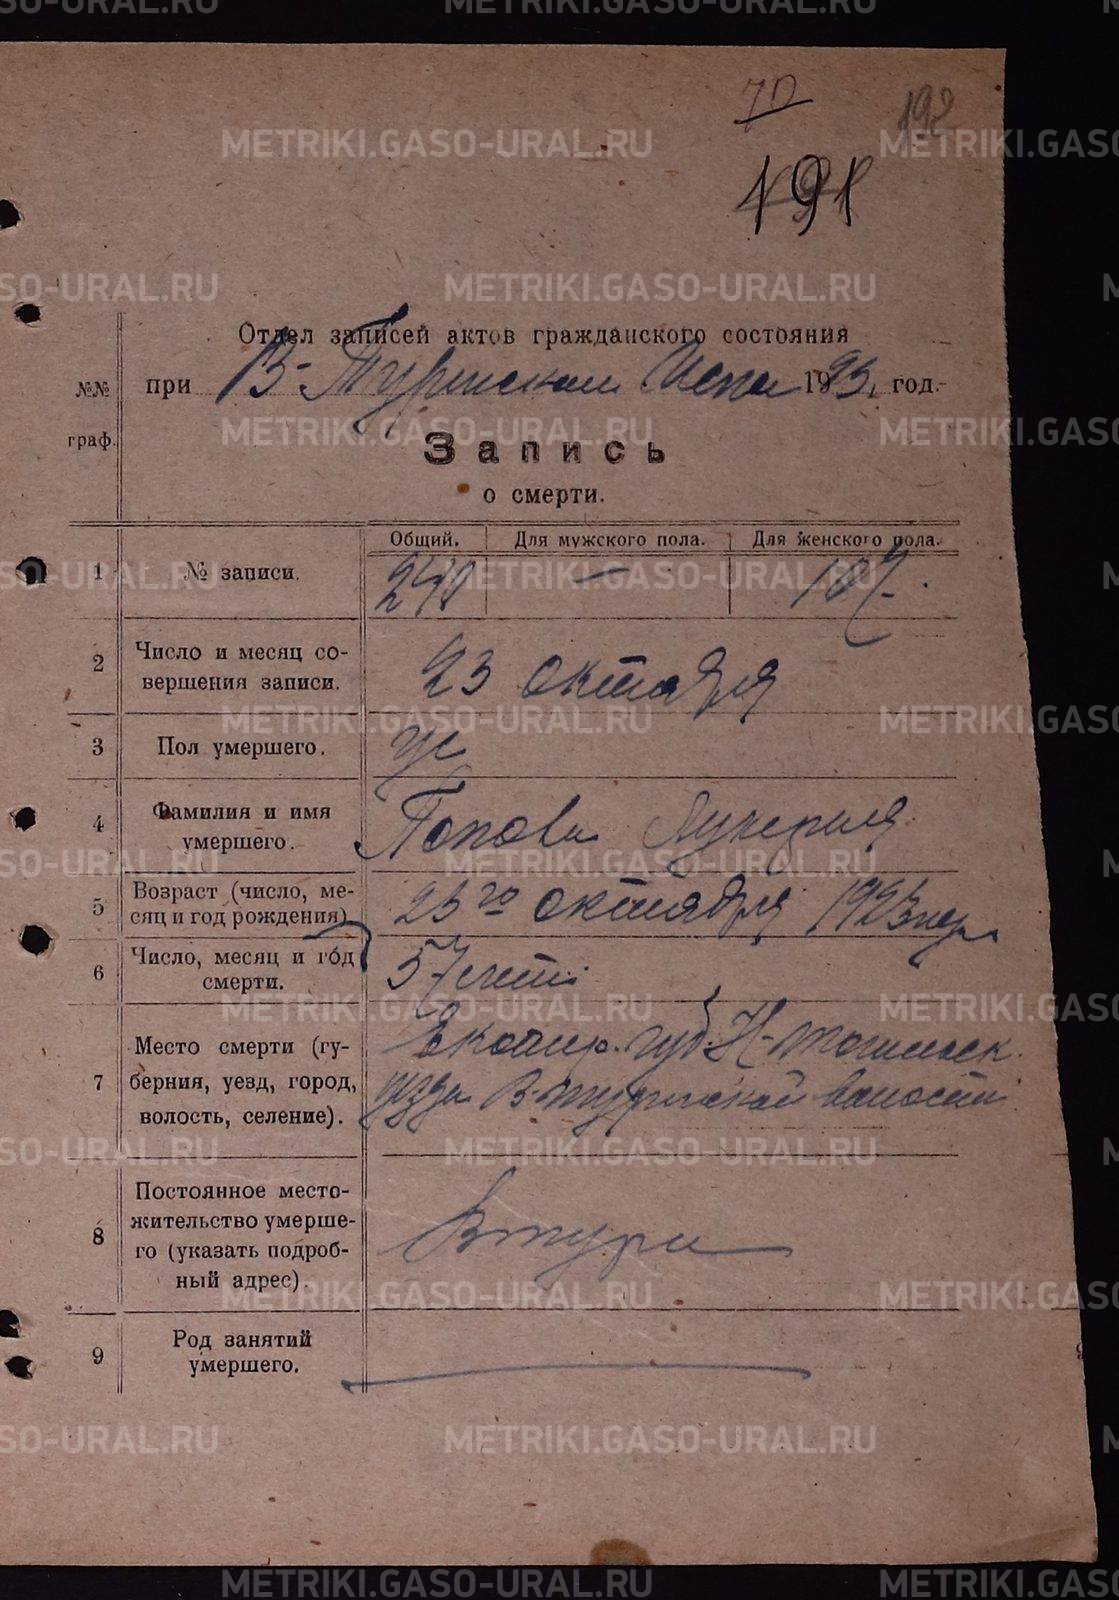 METRIKI.GASO-URAL.RU
70
192
191
Отдел записей актов гражданского состояния
при В-Туринском Испо 1923, год.
№№ граф.
Запись
о смерти.
Общий. Для мужского пола. Для женского пола.
1 № записи. 240 — 107.
2 Число и месяц со-
вершения записи. 23 октября
3 Пол умершего. ж
4 Фамилия и имя
умершего. Попова Лукерия
5 Возраст (число, ме-
сяц и год рождения) 23го октября 1923
6 Число, месяц и год
смерти. 57 лет
7 Место смерти (гу-
берния, уезд, город,
волость, селение). Екатер. губ. Н-Тагильск.
уезда В-туринской волости
8 Постоянное место-
жительство умерше-
го (указать подроб-
ный адрес). Втура
9 Род занятий
умершего. —